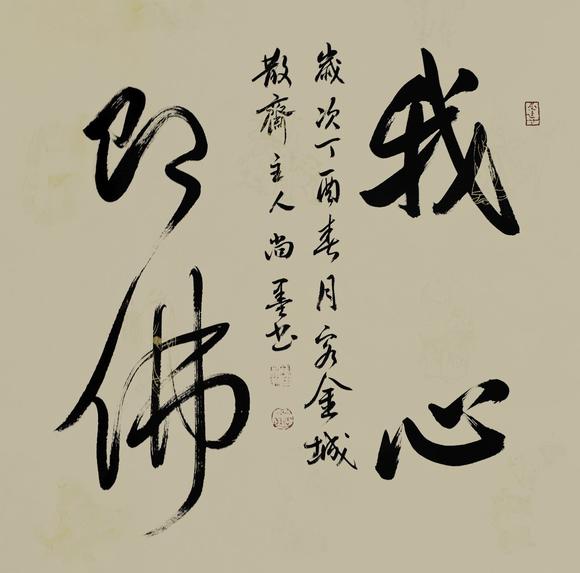 我心
歲次丁酉春月客金城
散齋主人尚墨书
即佛